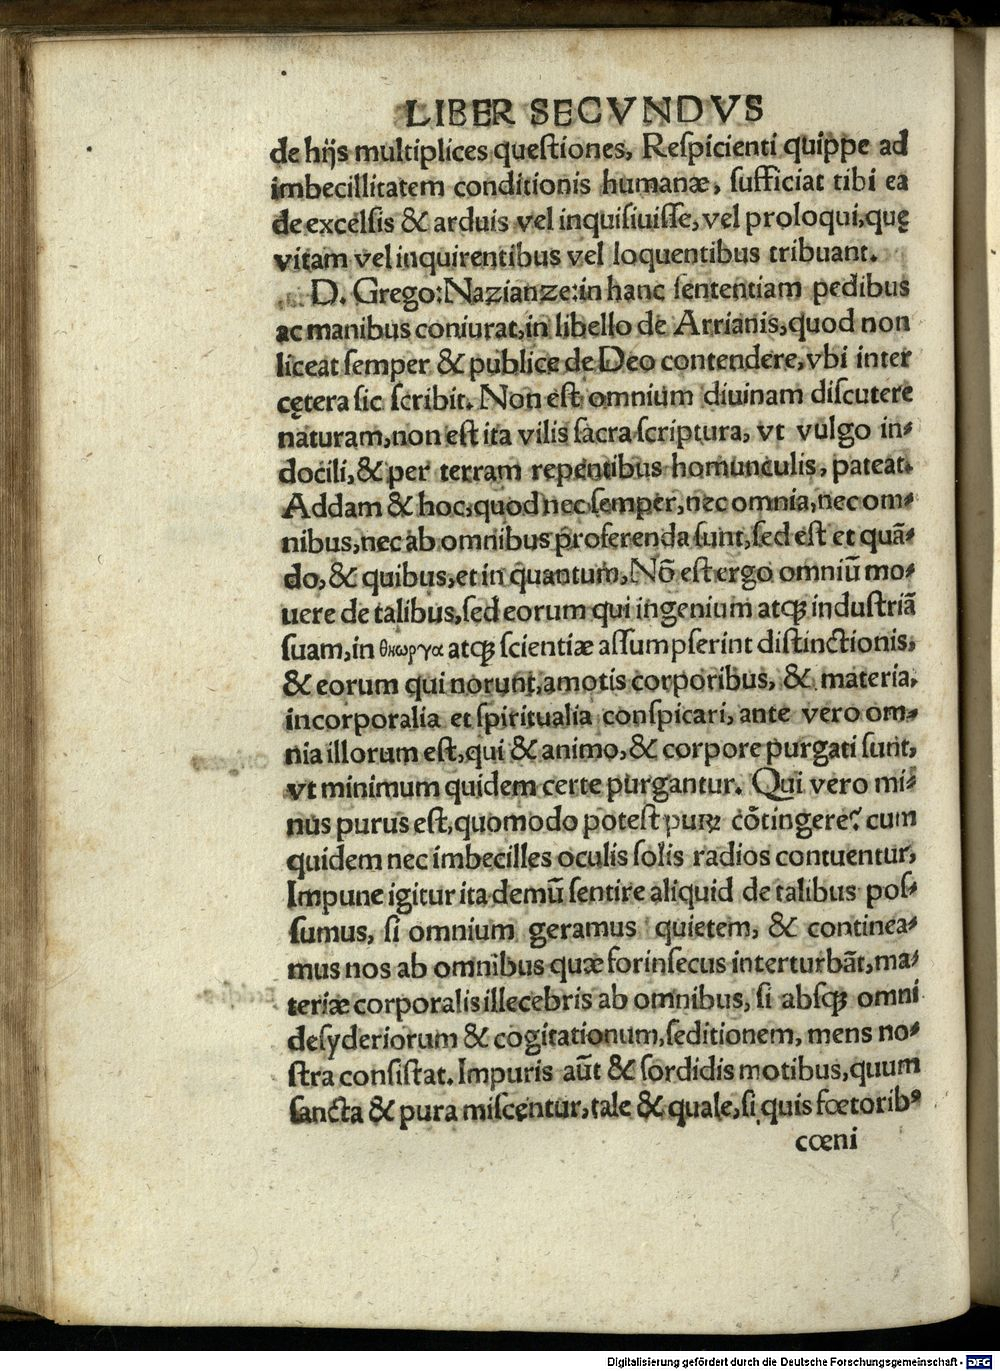 LIBER SECVNDVS
de hijs multiplices questiones, Respicienti quippe ad
imbecillitatem conditionis humanæ, sufficiat tibi ea
de excelsis & arduis vel inquisiuisse, vel proloqui, quę
vitam vel inquirentibus vel loquentibus tribuant.
D. Grego: Nazianze: in hanc sententiam pedibus
ac manibus coniurat, in libello de Arrianis, quod non
liceat semper & publice de Deo contendere, vbi inter
cętera sic scribit. Non est omnium diuinam discutere
naturam, non est ita vilis sacra scriptura, vt vulgo in⸗
docili, & per terram repentibus homunculis, pateat.
Addam & hoc, quod nec semper, nec omnia, nec om⸗
nibus, nec ab omnibus proferenda sunt, sed est et quã⸗
do, & quibus, et in quantum, Nõ est ergo omniũ mo⸗
uere de talibus, sed eorum qui ingenium atqꝫ industriã
suam, in θεωργα atqꝫ scientiæ assumpserint distinctionis,
& eorum qui norunt, amotis corporibus, & materia,
incorporalia et spiritualia conspicari, ante vero om⸗
nia illorum est, qui & animo, & corpore purgati sunt,
vt minimum quidem certe purgantur. Qui vero mi⸗
nus purus est, quomodo potest puꝝ cõtingere? cum
quidem nec imbecilles oculis solis radios contuentur,
Impune igitur ita demũ sentire aliquid de talibus pos⸗
sumus, si omnium geramus quietem, & continea⸗
mus nos ab omnibus quæ forinsecus interturbãt, ma⸗
teriæ corporalis illecebris ab omnibus, si absqꝫ omni
desyderiorum & cogitationum, seditionem, mens no⸗
stra consistat. Impuris aũt & sordidis motibus, quum
sancta & pura miscentur, tale & quale, si quis fœtoribꝰ
cœni
Digitalisierung gefördert durch die Deutsche Forschungsgemeinschaft - DFG